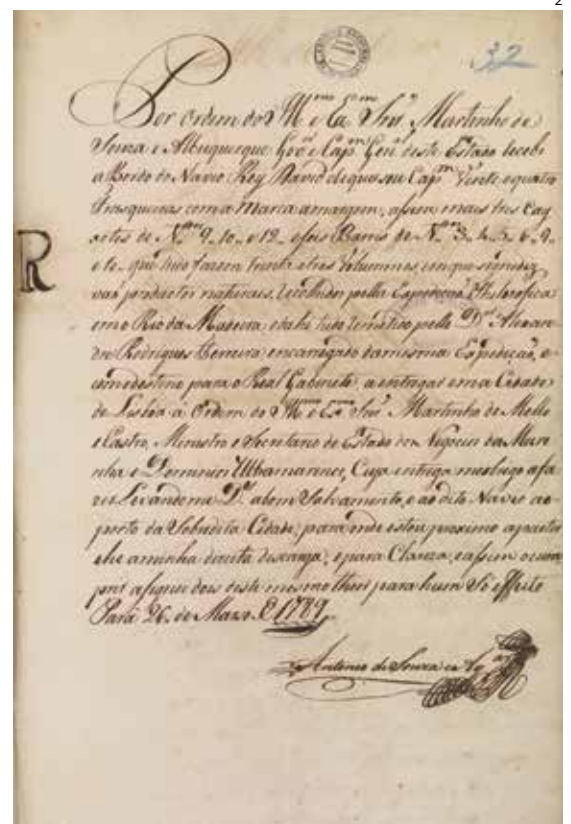 2
32
Por Ordem do Illmo e Exmo Snr Martinho de
Souza e Albuquerque Govor e Capm Genal deste Estado recebi
a Bordo do Navio Rey David de que sou Capm Vinte e quatro
Frasqueiras com a Marca a margem, assim mais tres Cay
xotes de Nros 9. 10. e 12. e seis Barris de Nros 3. 4. 5. 6. 9.
e 10. que tudo fazem trinta e tres Volummes, em que
R
vaõ productos naturaes, recolhidos pella Expediçaõ Philosofica
em o Rio da Madeira e dahi tudo remetido pello Dor Alexan
dre Rodrigues Ferreira encarregado da mesma Expediçaõ, e
com destino para o Real Gabinete, a entregar em a Cidade
de Lisboa à Ordem do Illmo e Exmo Snr Martinho de Mello
e Castro, Ministro e Secretario de Estado dos Negocios da Mari
nha e Dominios Ultramarinos, Cuja entrega me obrigo a fa
zer Levandome Ds. a bom Salvamento, e ao dito Navio ao
porto da Sobredita Cidade, para onde estou proximo a partir
e he a minha direita descarga, e para Clareza,
assignei dous deste mesmo theor para hum Só effeito
Pará 26. de Marso de 1789.
Antonio de Souza e